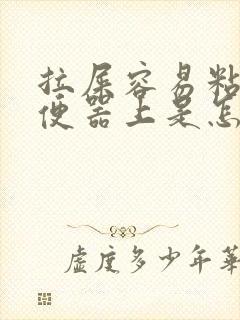 拉屎容易粘
便器上是怎
虚度多少年华